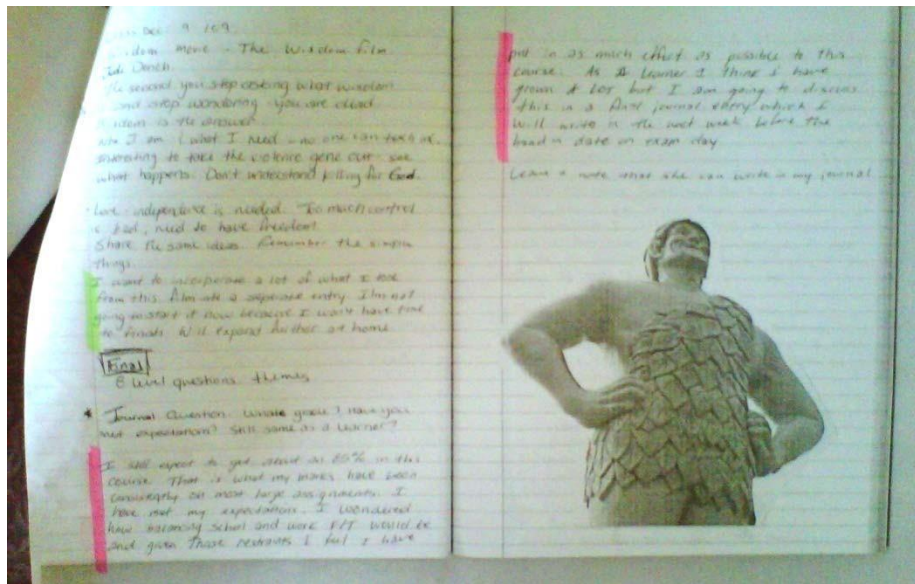 Dec 9 /09
movie - The Wisdom film
Judi Dench.
The second you stop asking what wisdom
and stop wondering you are dead
is the answer.
Who I am & what I need - no one can teach me.
Interesting to take the violence gene out - see
what happens. Don't understand killing for God.
Love, independence is needed. Too much control
is bad, need to have freedom.
Share the same ideas. Remember the simple
things.
I want to incorporate a lot of what I took
from this film into a separate entry. I'm not
going to start it now because I won't have time
to finish. Will expand further at home
Final
level questions. themes
* Journal Question: grade? Have you
met expectations? Still same as a learner?
I still expect to get about an 85% in this
course. That is what my marks have been
consistently on most large assignments. I
have met my expectations. I wondered
how balancing school and work F/T would be
and given those restraints I feel I have
put in as much effort as possible to this
course. As a learner I think I have
grown a lot but I am going to discuss
this in a final journal entry which I
will write in the next week before the
hand in date on exam day.
Leave a note that she can write in my journal